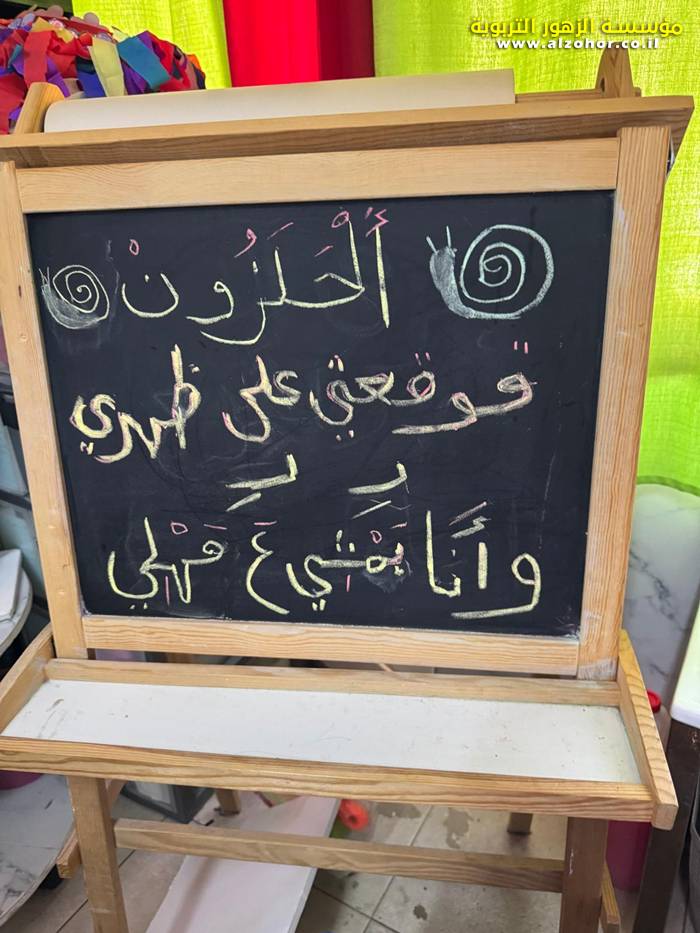 مؤسسة الزهور التربوية
www.alzohor.co.il
أَلْحَلَزُونْ
قوقعتي على ظهري
بِ بِ
وأَنا بَمْشي عَ مَهْلي